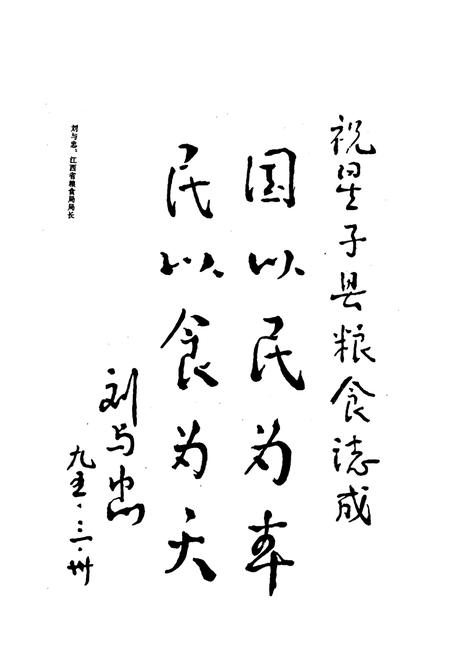 祝星子县粮食誌成
国以民为本
民以食为天
刘与忠
九五·三·卅
刘与忠:江西省粮食局局长